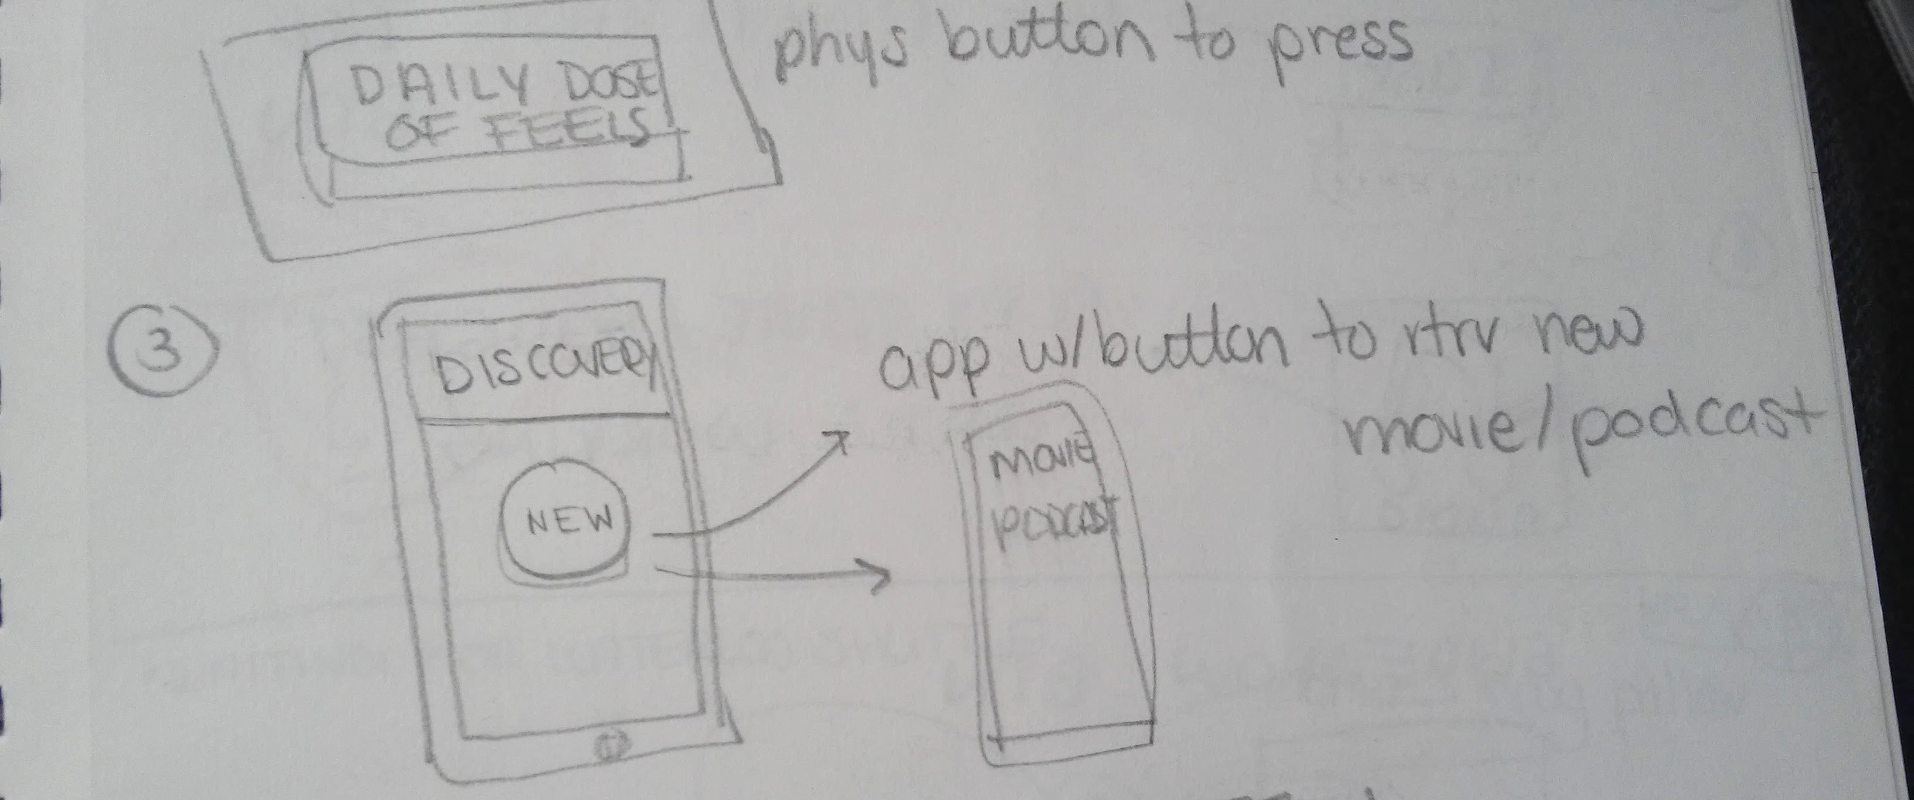 DAILY DOSE
OF FEELS
phys button to press
3
DISCOVERY
NEW
app w/button to rtrv new
movie/podcast
movie
podcast